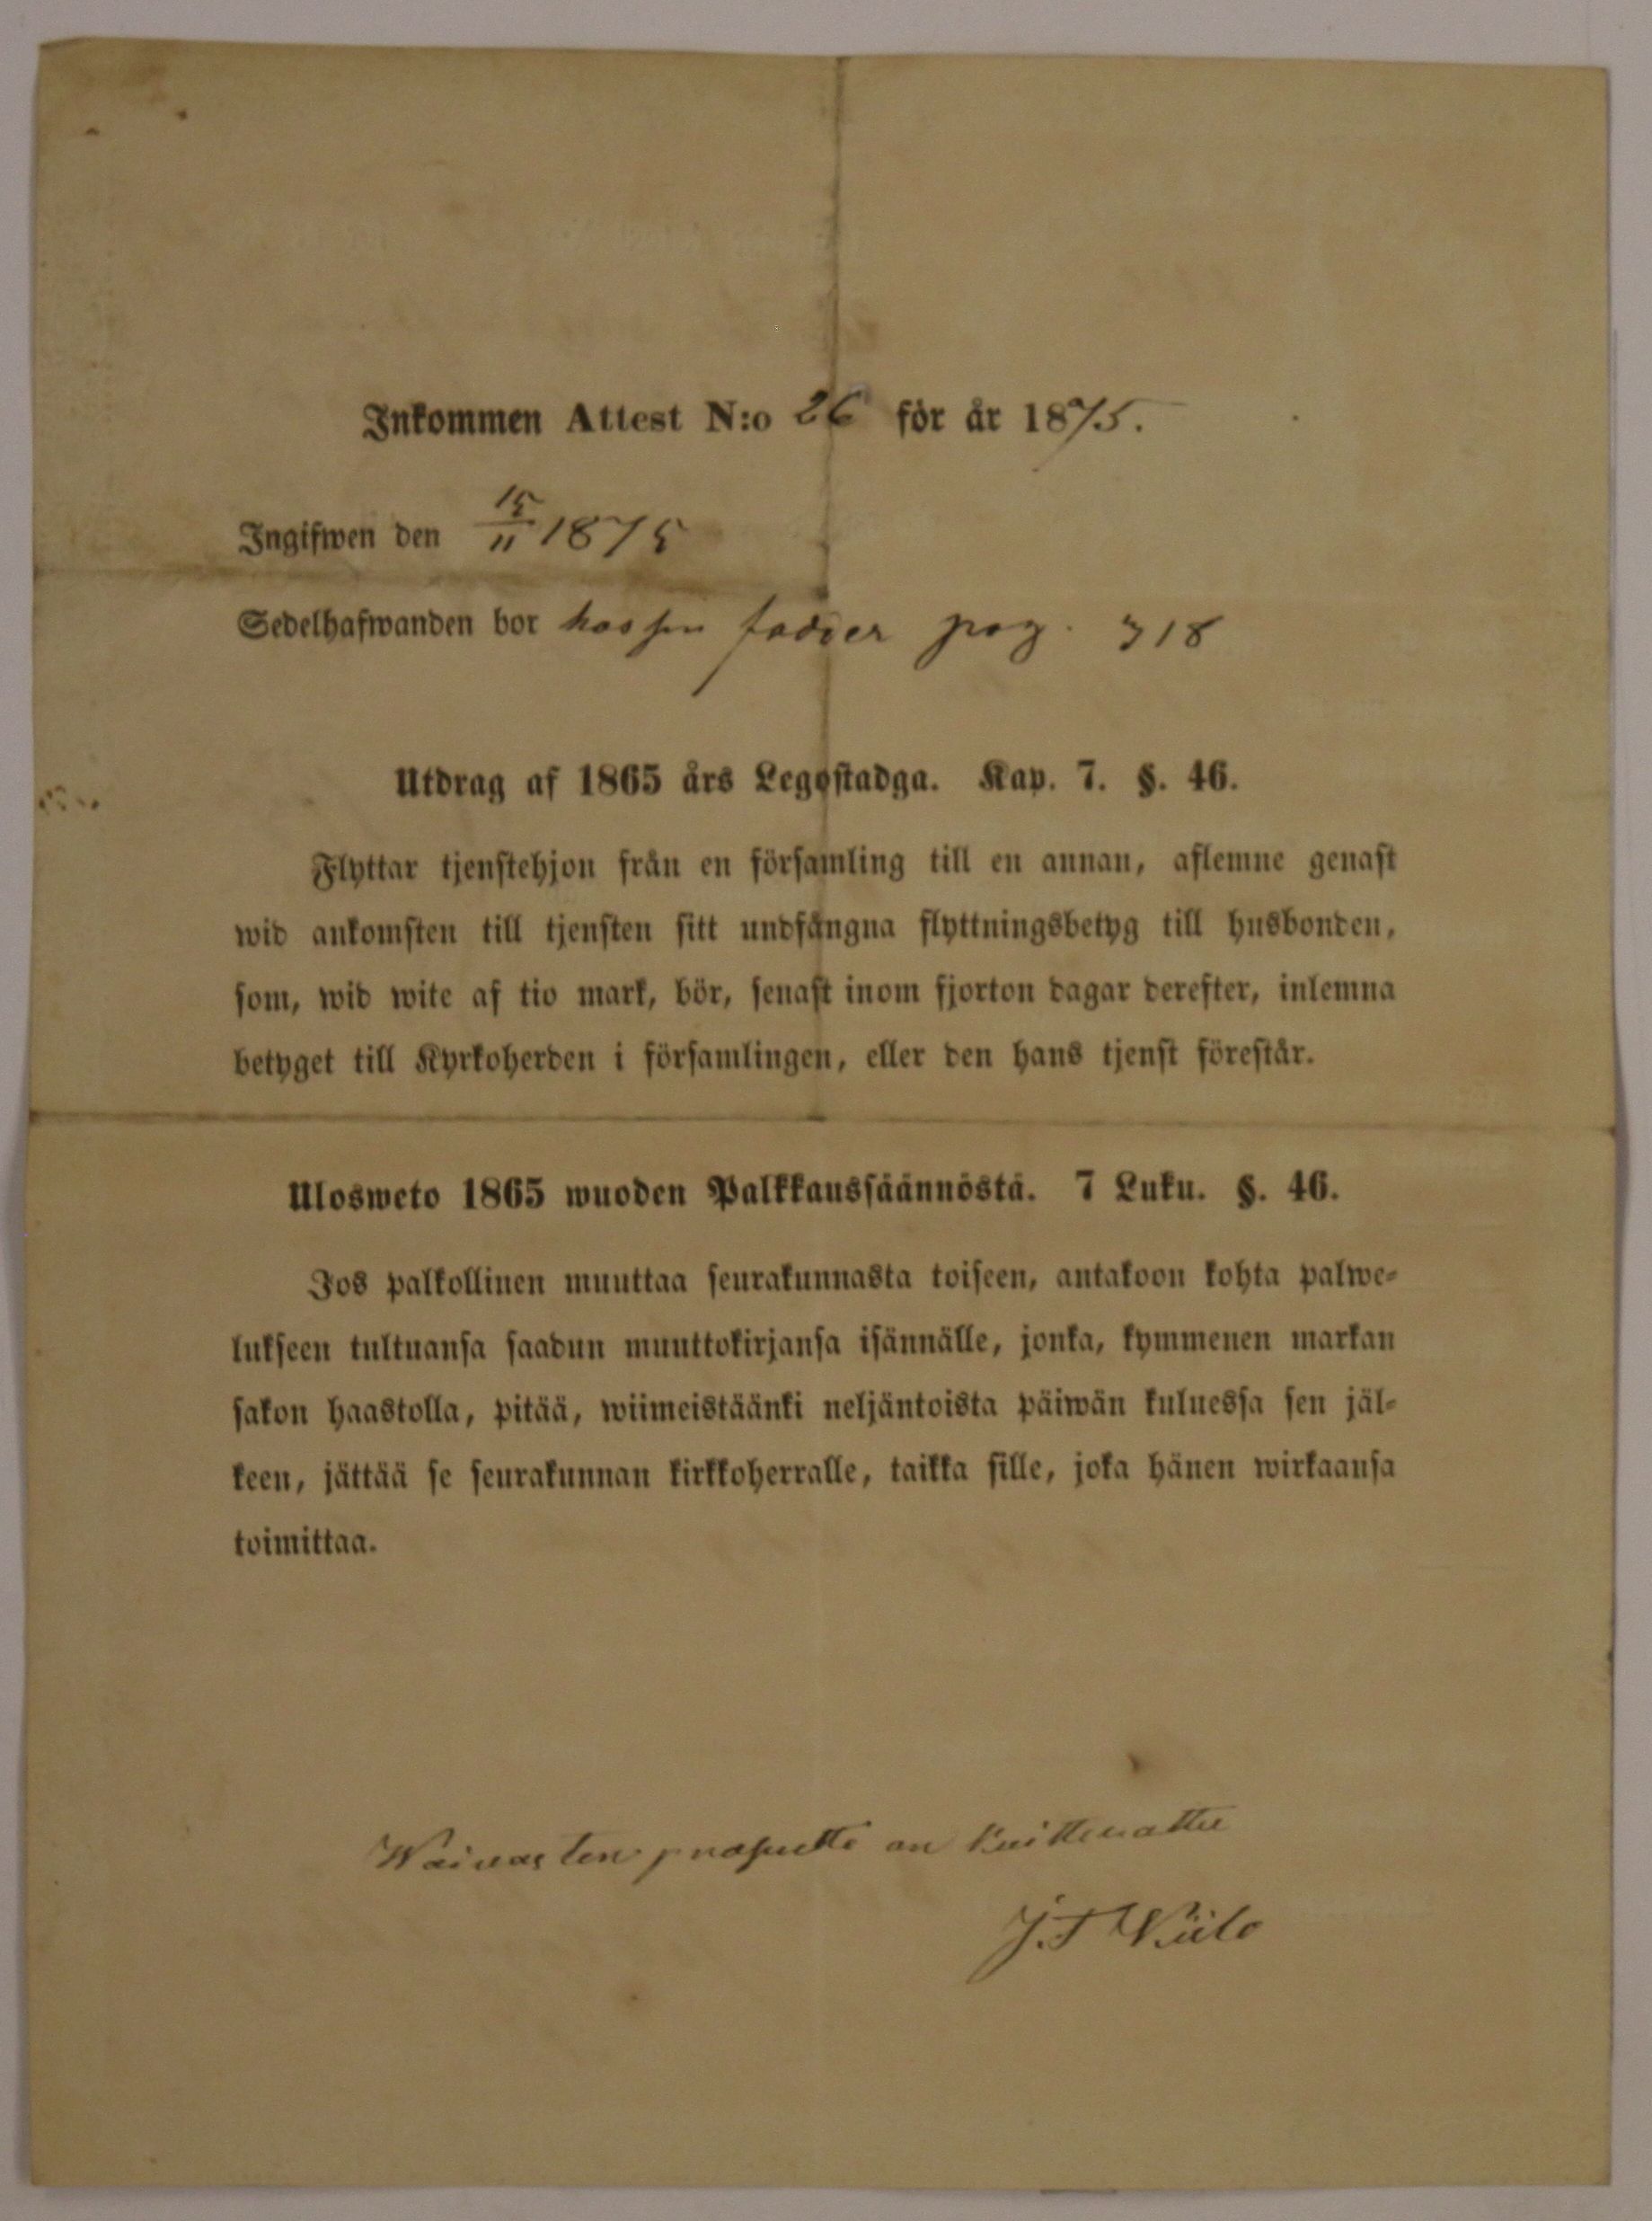 Inkommen Attest N:o 26 för år 1875.
Ingifwen den 15/11 1875
Sedelhafwanden bor hos sin fader pag. 318
Utdrag af 1865 års Legostadga. Kap. 7. §. 46.
Flyttar tjenstehjon från en församling till en annan, aflemne genast
wid ankomsten till tjensten sitt undfångna flyttningsbetyg till husbonden,
som, wid wite af tio mark, bör, senast inom fjorton dagar derefter, inlemna
betyget till Kyrkoherden i församlingen, eller den hans tjenst förestår.
Ulosweto 1865 wuoden Palkkaussäännöstä. 7 Luku. §. 46.
Jos palkollinen muuttaa seurakunnasta toiseen, antakoon kohta palwe-
lukseen tultuansa saadun muuttokirjansa isännälle, jonka, kymmenen markan
sakon haastolla, pitää, wiimeistäänki neljäntoista päiwän kuluessa sen jäl-
keen, jättää se seurakunnan kirkkoherralle, taikka sille, joka hänen wirkaansa
toimittaa.
Waiwasten on kuitteuattu